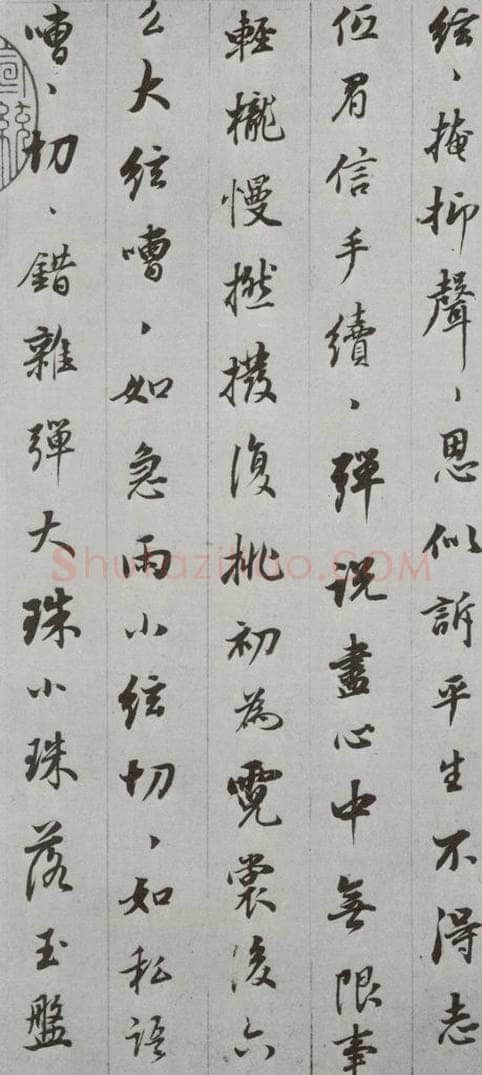 絃、掩抑聲、思似訴平生不得志
低眉信手續、彈説盡心中無限事
輕攏慢撚撥復挑初為霓裳後六
么大絃嘈、如急雨小絃切、如私語
嘈、切、錯雜彈大珠小珠落玉盤
宣統
Shufaziliao.COM